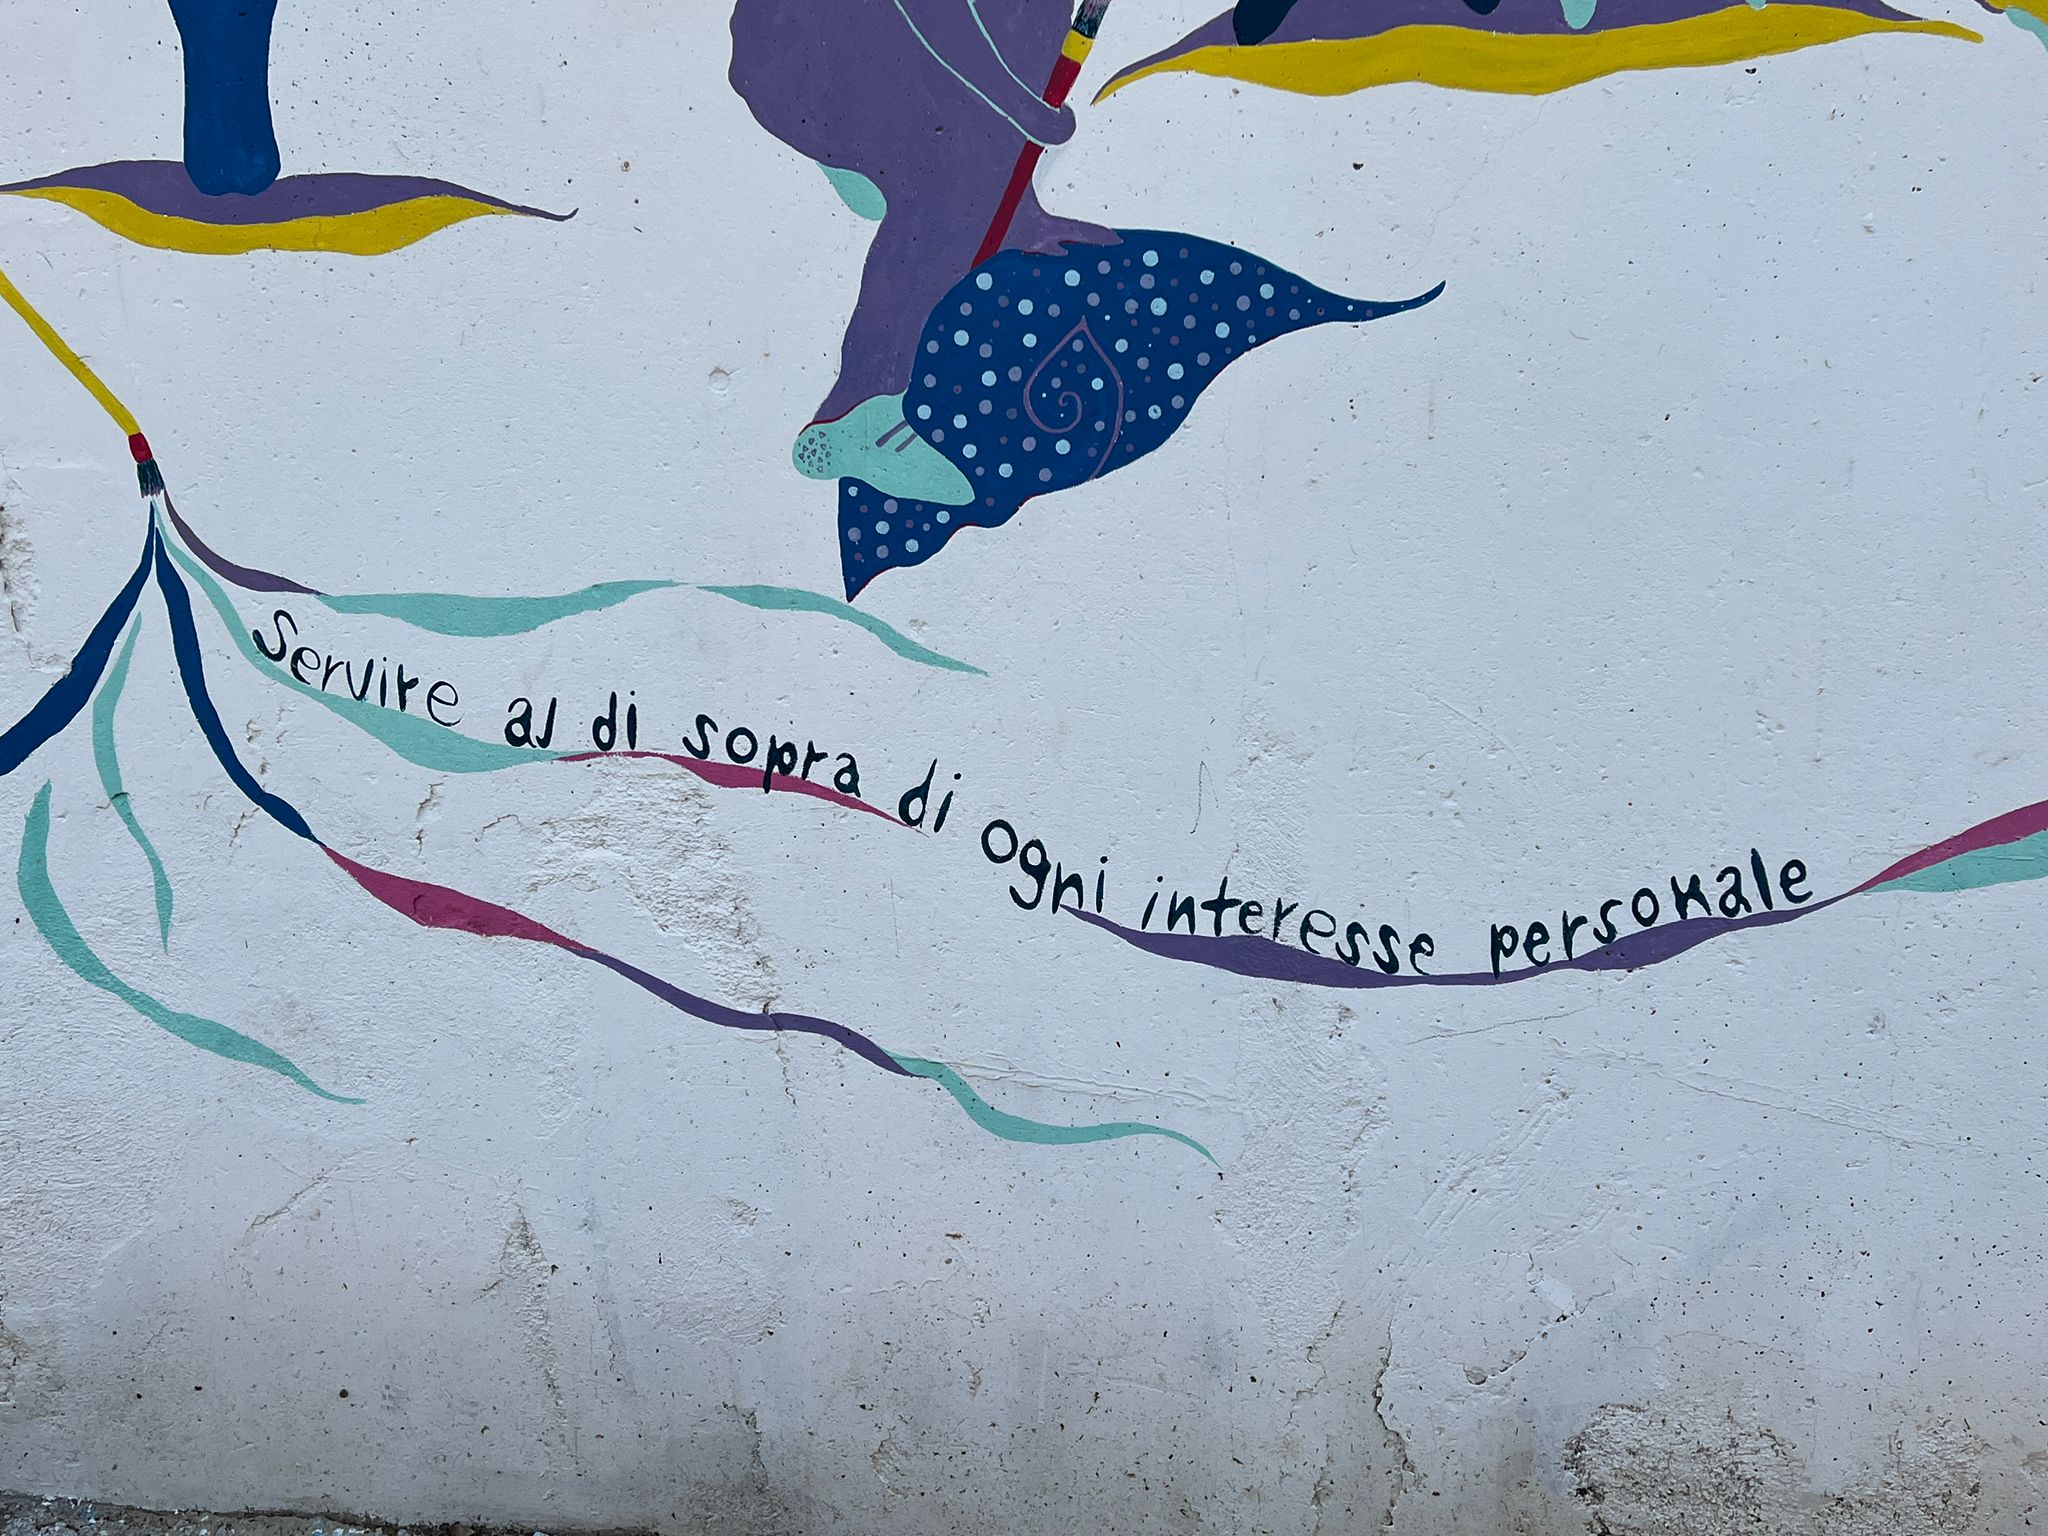 Servire al di sopra di ogni interesse personale